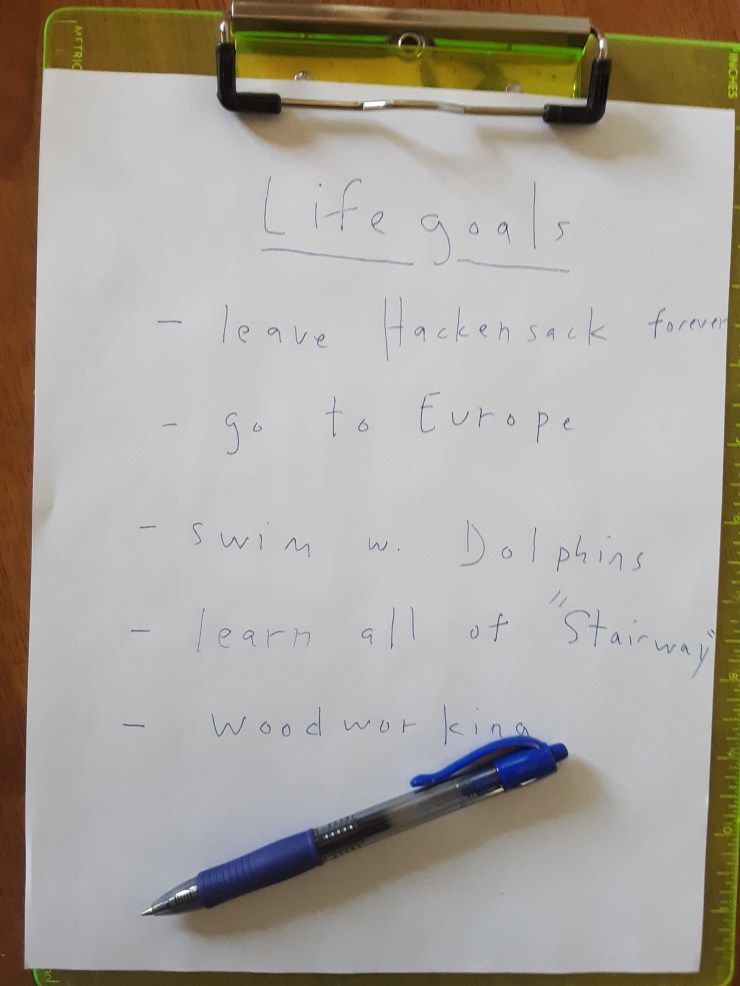 METRIC
INCHES
Life goals
- leave Hackensack forever
- go to Europe
- swim w. Dolphins
- learn all of "Stairway"
- woodworking